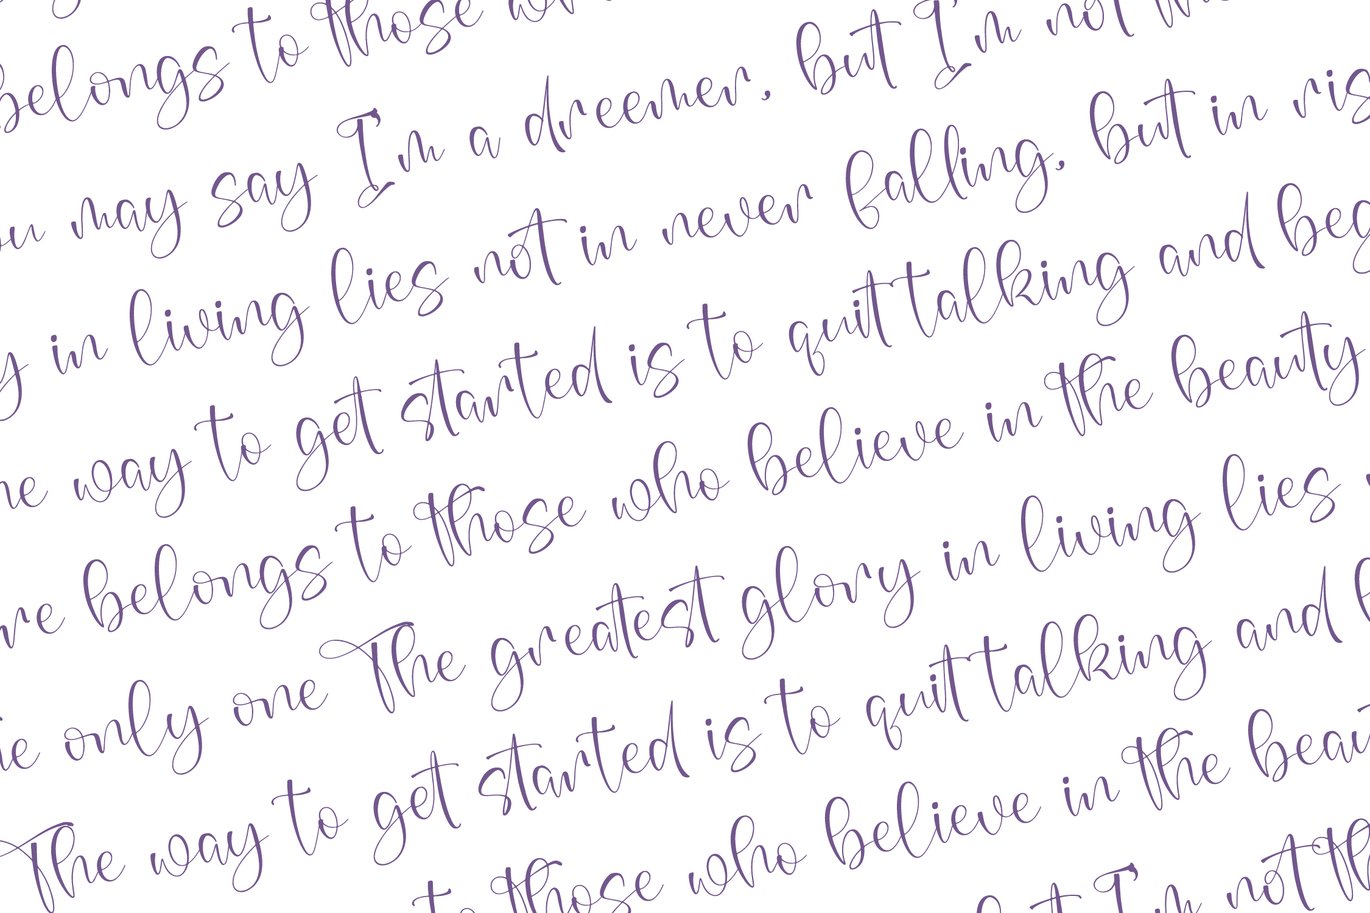 belongs to those
may say I'm a dreemer, but I'm not
in living lies not in never falling, but in
way to get started is to quit talking and
belongs to those who believe in the beauty
only one The greatest glory in living lies
The way to get started is to quit talking and
to those who believe in the
I'm not